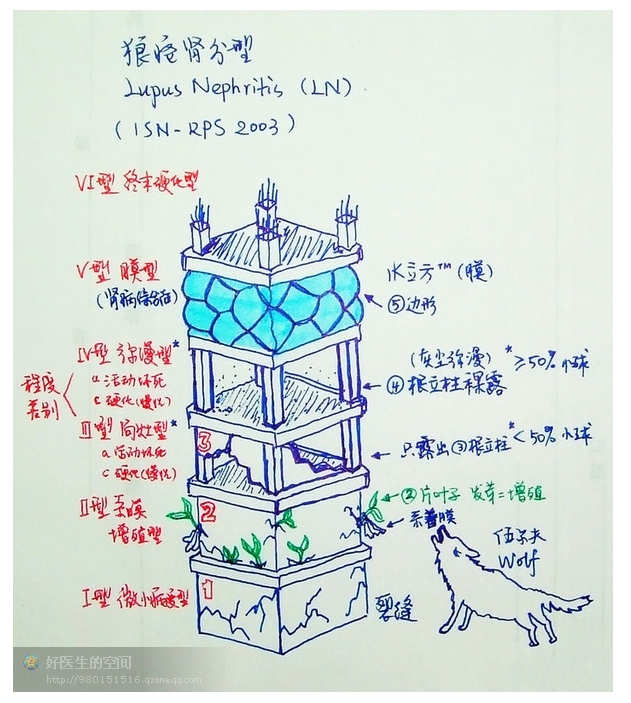 狼疮肾分型
Lupus Nephritis (LN)
(ISN-RPS 2003)
VI型 终末硬化型
V型 膜型
(肾病综合征)
水立方™(膜)
⑤边形
IV型 弥漫型*
a 活动坏死
c 硬化(慢化)
程度
差别
(灰尘弥漫)
④根立柱裸露
*≥50%小球
III型 局灶型*
a 活动坏死
c 硬化(慢化)
3
只露出③根立柱*<50%小球
II型 系膜
增殖型
2
②片叶子 发芽=增殖
系着膜
I型 微小病变型
1
裂缝
伍尔夫
Wolf
好医生的空间
http://980151516.qzone.qq.com